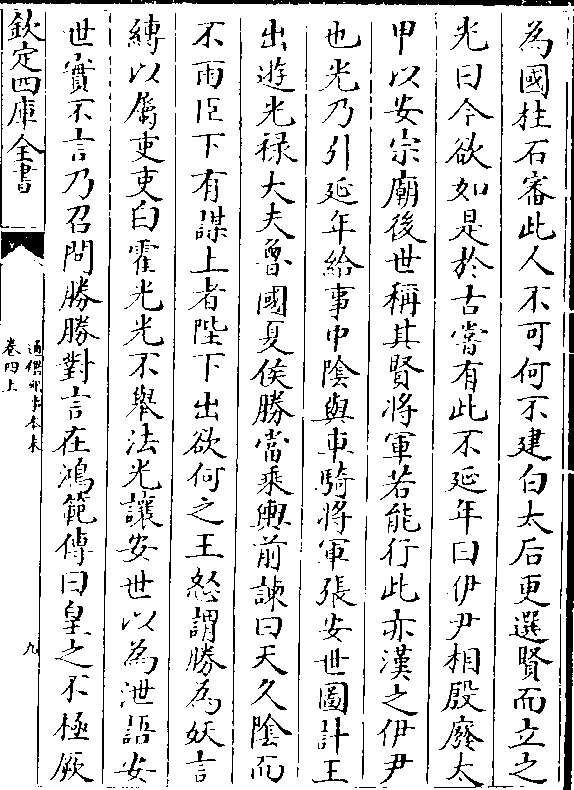 為國柱石審此人不可何不建白太后更選賢而立之
光曰今欲如是於古嘗有此不延年曰伊尹相殷廢太
甲以安宗廟後世稱其賢將軍若能行此亦漢之伊尹
也光乃引延年給事中陰與車騎將軍張安世圖計王
出遊光禄大夫魯國夏侯勝當乘輿前諫曰天久陰而
不雨臣下有謀上者陛下出欲何之王怒謂勝為妖言
縛以屬吏吏白霍光光不舉法光讓安世以為泄語安
世實不言乃召問勝勝對言在鴻範傳曰皇之不極厥
欽定四庫全書
通鑑紀事本末
卷四上
九